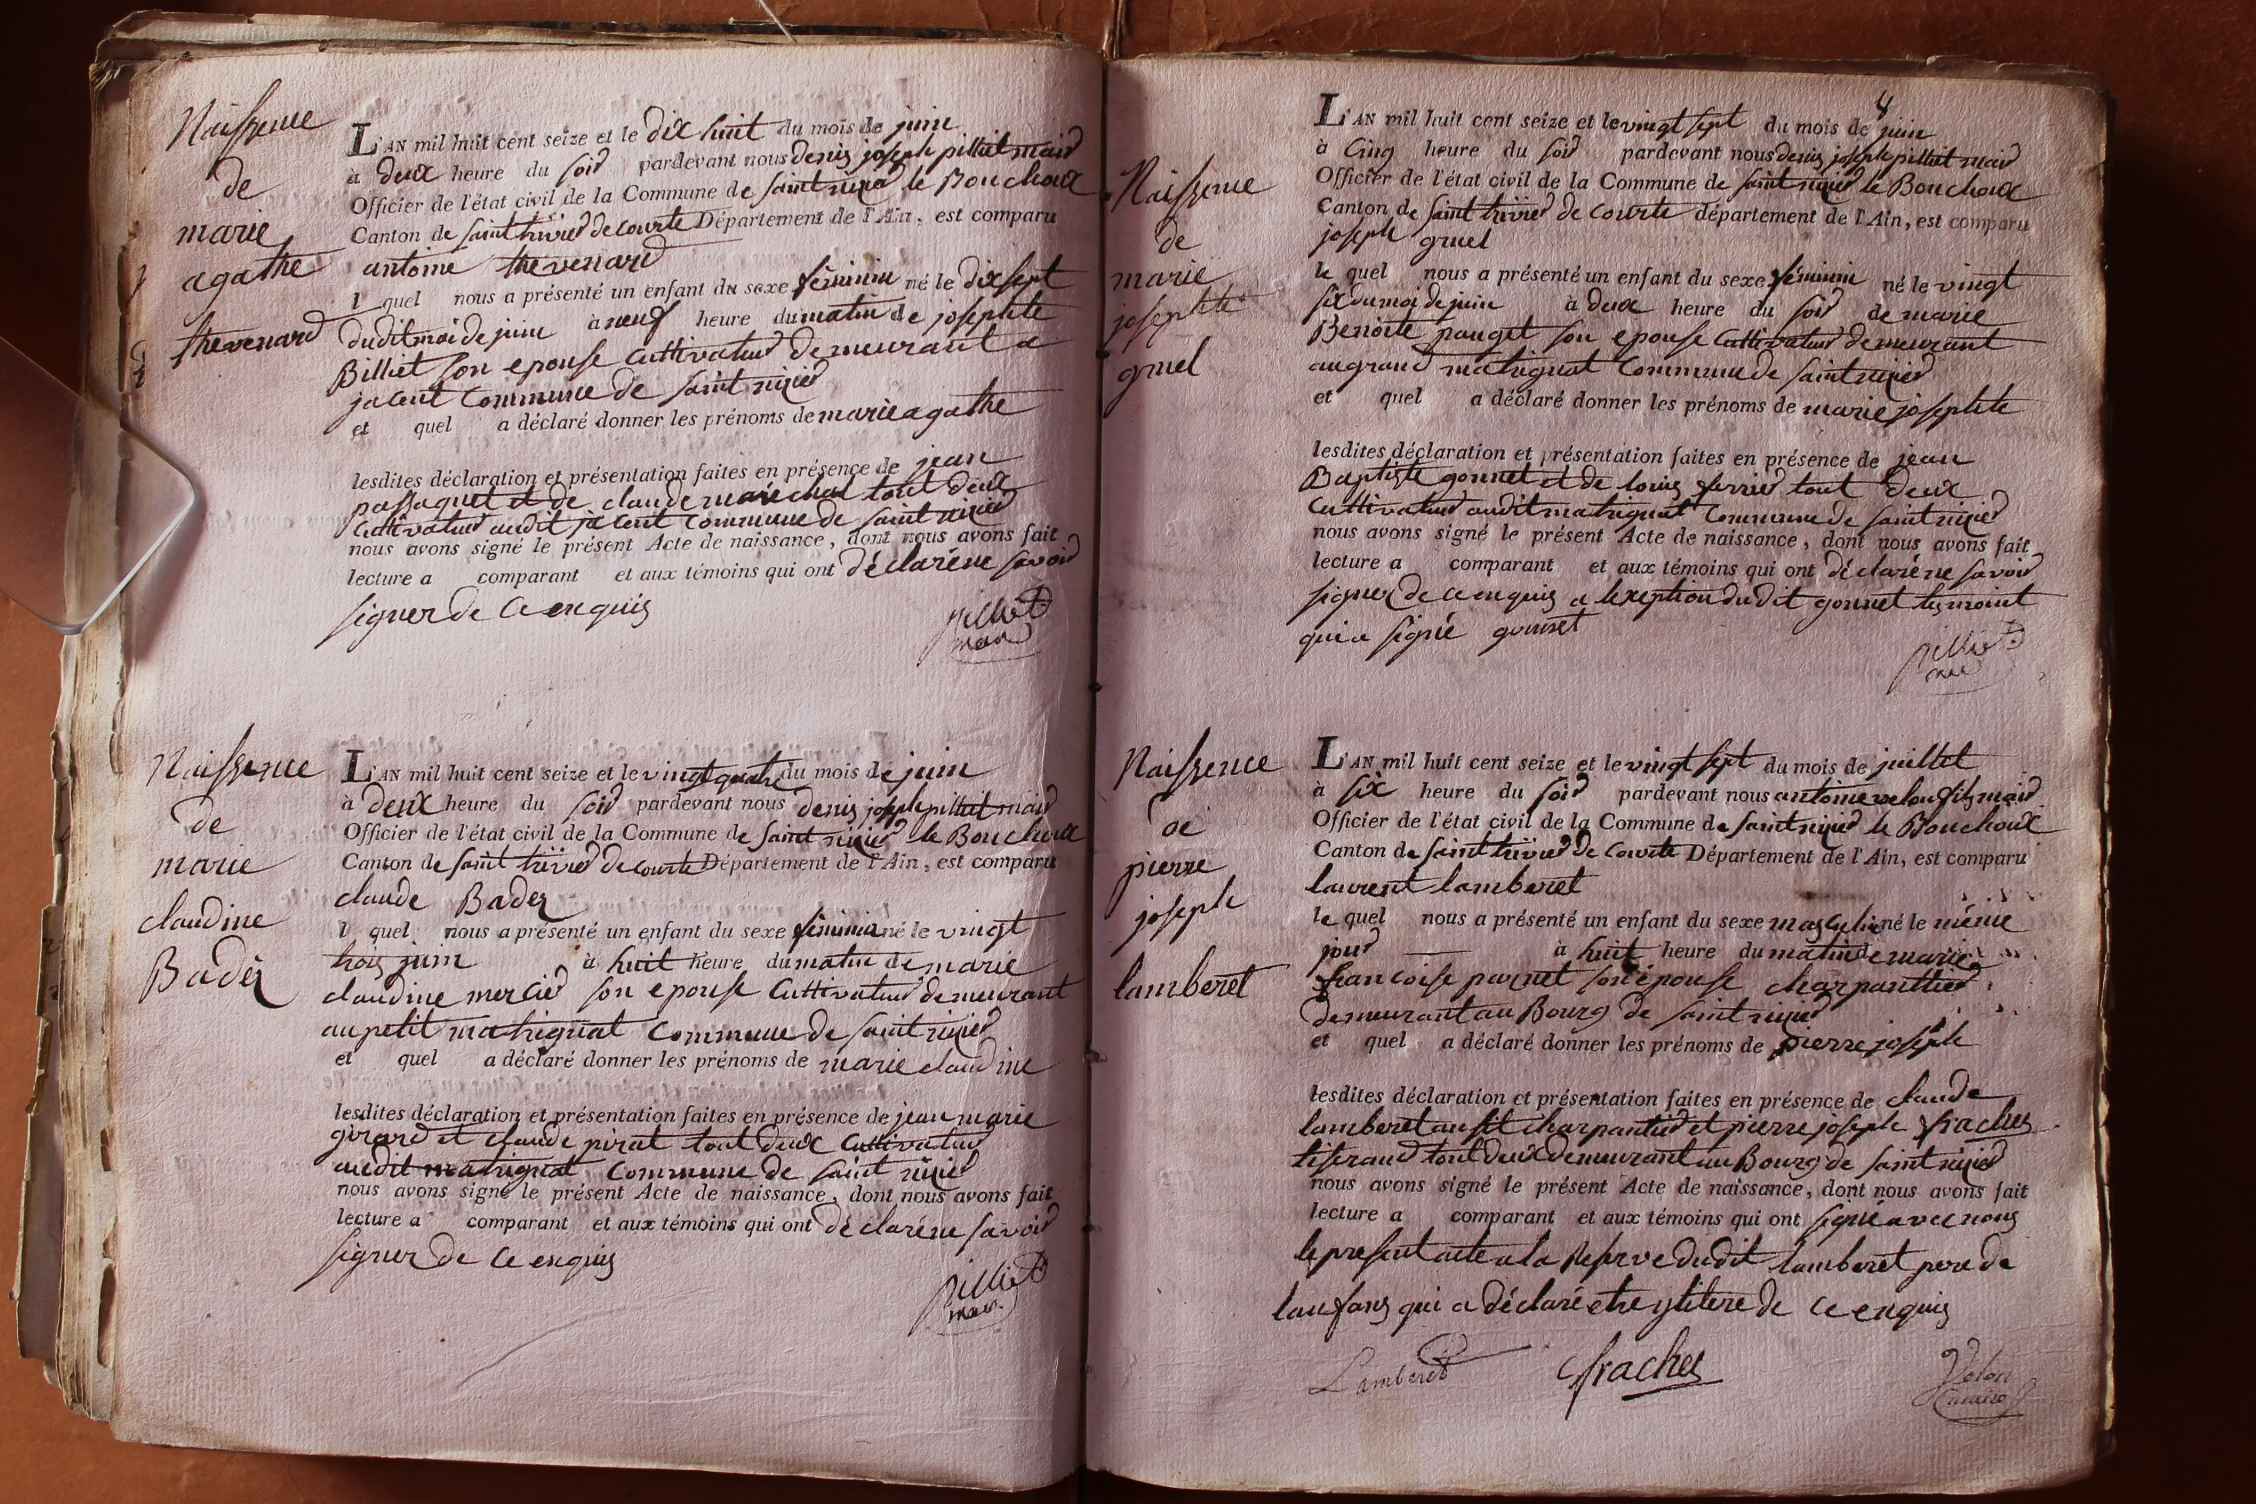 Naissence
de
marie
agathe
thevenard
L'AN mil huit cent seize et le dix huit du mois de juin
à deux heure du soir pardevant nous denis joseph pilliet maire
Officier de l'état civil de la Commune de saint nizier le Bouchoux
Canton de saint trivier de courte Département de l'Ain, est comparu
antoine thevenard
l quel nous a présenté un enfant du sexe féminin né le dix sept
dudit moi de juin à neuf heure du matin de josephte
Billiet son epouse Cultivateur demeurant a
jacent Commune de saint nizier
et quel a déclaré donner les prénoms de marie agathe
lesdites déclaration et présentation faites en présence de jean
passaquet et de claude maréchal tout deux
Cultivateur audit jacent Commune de saint nizier
nous avons signé le présent Acte de naissance, dont nous avons fait
lecture a comparant et aux témoins qui ont déclaré ne savoir
signer de ce enquis
pilliet
maire
Naissence
de
marie
claudine
Badez
L'AN mil huit cent seize et le vingt quatre du mois de juin
à deux heure du soir pardevant nous denis joseph pilliet maire
Officier de l'état civil de la Commune de saint nizier le Bouchoux
Canton de saint trivier de courte Département de l'Ain, est comparu
claude Badez
l quel nous a présenté un enfant du sexe féminin né le vingt
trois juin à huit heure du matin de marie
claudine mercier son epouse Cultivateur demeurant
au petit matrignat Commune de saint nizier
et quel a déclaré donner les prénoms de marie claudine
lesdites déclaration et présentation faites en présence de jean marie
girard et claude pirat tout deux Cultivateur
audit matrignat Commune de saint nizier
nous avons signé le présent Acte de naissance, dont nous avons fait
lecture a comparant et aux témoins qui ont déclaré ne savoir
signer de ce enquis
pilliet
maire
4
Naissence
de
marie
josephte
gruel
L'AN mil huit cent seize et le vingt sept du mois de juin
à Cinq heure du soir pardevant nous denis joseph pilliet maire
Officier de l'état civil de la Commune de saint nizier le Bouchoux
Canton de saint trivier de courte département de l'Ain, est comparu
joseph gruel
le quel nous a présenté un enfant du sexe féminin né le vingt
six du moi de juin à deux heure du soir de marie
Benoite pauget son epouse Cultivateur demeurant
au grand matrignat Commune de saint nizier
et quel a déclaré donner les prénoms de marie josephte
lesdites déclaration et présentation faites en présence de jean
Baptiste gonnet et de louis ferrier tout deux
Cultivateur audit matrignat Commune de saint nizier
nous avons signé le présent Acte de naissance, dont nous avons fait
lecture a comparant et aux témoins qui ont déclaré ne savoir
signer de ce enquis a lexeption dudit gonnet tesmoint
qui a signé gonnet
pilliet
maire
Naissence
de
pierre
joseph
lamberet
L'AN mil huit cent seize et le vingt sept du mois de juillet
à six heure du soir pardevant nous antoine velon fils maire
Officier de l'état civil de la Commune de saint nizier le Bouchoux
Canton de saint trivier de courte Département de l'Ain, est comparu
laurent lamberet
le quel nous a présenté un enfant du sexe masculin né le même
jour à huit heure du matin de marie
francoise parnet son épouse charpanttier
demeurant au Bourg de saint nizier
et quel a déclaré donner les prénoms de pierre joseph
lesdites déclaration et présentation faites en présence de claude
lamberet aussit charpantier et pierre joseph frachet
tisserand tout deux demeurant au Bourg de saint nizier
nous avons signé le présent Acte de naissance, dont nous avons fait
lecture a comparant et aux témoins qui ont signé avec nous
le present acte a la Reserve dudit lamberet pere de
lanfans qui a déclaré etre yliterede ce enquis
Lamberet
frachet
Velon
maire